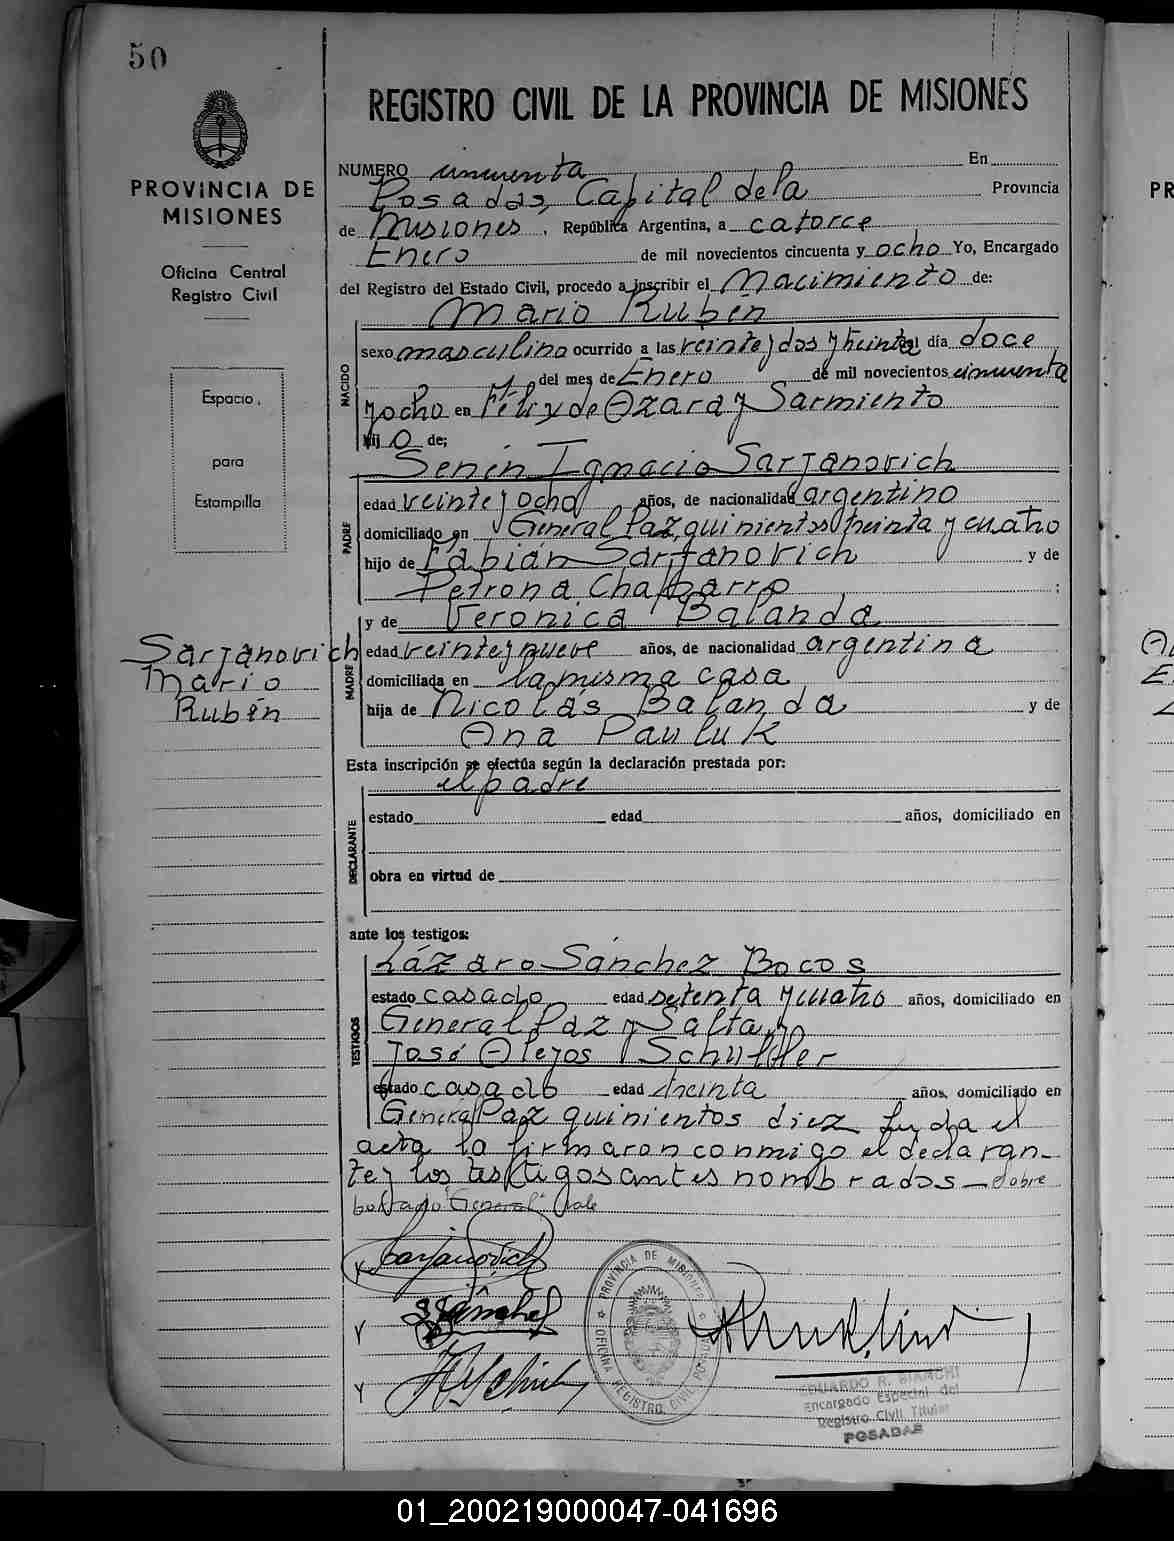 50
PROVINCIA DE
MISIONES
Oficina Central
Registro Civil
Espacio
para
Estampilla
Sarjanovich
Mario
Rubén
REGISTRO CIVIL DE LA PROVINCIA DE MISIONES
NUMERO cincuenta En
Posadas, Capital de la Provincia
de Misiones, República Argentina, a catorce
Enero de mil novecientos cincuenta y ocho Yo, Encargado
del Registro del Estado Civil, procedo a inscribir el Nacimiento de:
Mario Rubén
NACIDO
sexo masculino ocurrido a las veinte y dos y treinta el día doce
del mes de Enero de mil novecientos cincuenta
y ocho en Félix de Azara y Sarmiento
hijo de;
Senén Ignacio Sarjanovich
PADRE
edad veinte y ocho años, de nacionalidad argentino
domiciliado en General Paz, quinientos treinta y cuatro
hijo de Fabián Sarjanovich y de
Petrona Chaparro ;
y de Veronica Balanda
MADRE
edad veinte y nueve años, de nacionalidad argentina
domiciliada en la misma casa
hija de Nicolás Balanda y de
Ana Pauluk
Esta inscripción se efectúa según la declaración prestada por:
el padre
DECLARANTE
estado edad años, domiciliado en
obra en virtud de
ante los testigos:
Lázaro Sánchez Bocos
TESTIGOS
estado casado edad setenta y cuatro años, domiciliado en
General Paz y Salta, y
José Alejos Schuffler
estado casado edad treinta años, domiciliado en
General Paz quinientos diez Leyda el
acta la firmaron conmigo el declaran-
te y los testigos antes nombrados — Sobre
borrado "General" Vale
Sarjanovich
LSánchez
PROVINCIA DE MISIONES
OFICINA REGISTRO CIVIL POSADAS
EDUARDO R. BIANCHI
Encargado Especial del
Registro Civil Titular
POSADAS
PR
01_200219000047-041696